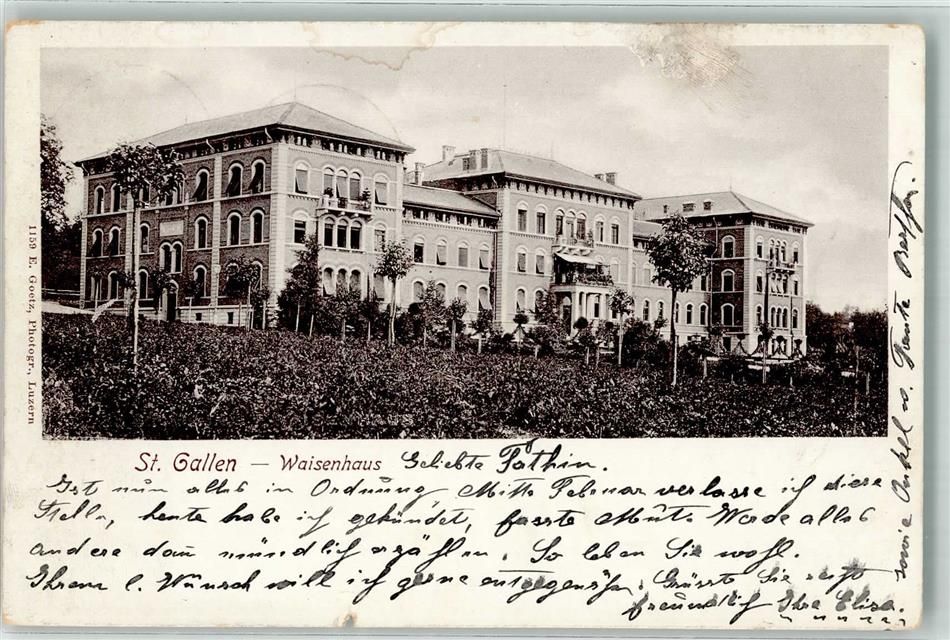 1159 E. Goetz, Photogr., Luzern
St. Gallen – Waisenhaus
Geliebte Pathin.
Ist nun alles in Ordnung, Mitte Februar verlasse ich diese
Stelle, heute habe ich gekündet, fasste Mut. Werde alles
andere dann mündlich erzählen. So leben Sie wohl.
Ihrem l. Wunsch will ich gerne entgegensehn. Grüsst Sie recht
freundlich Ihre Elise.
sowie Onkel u. Tante